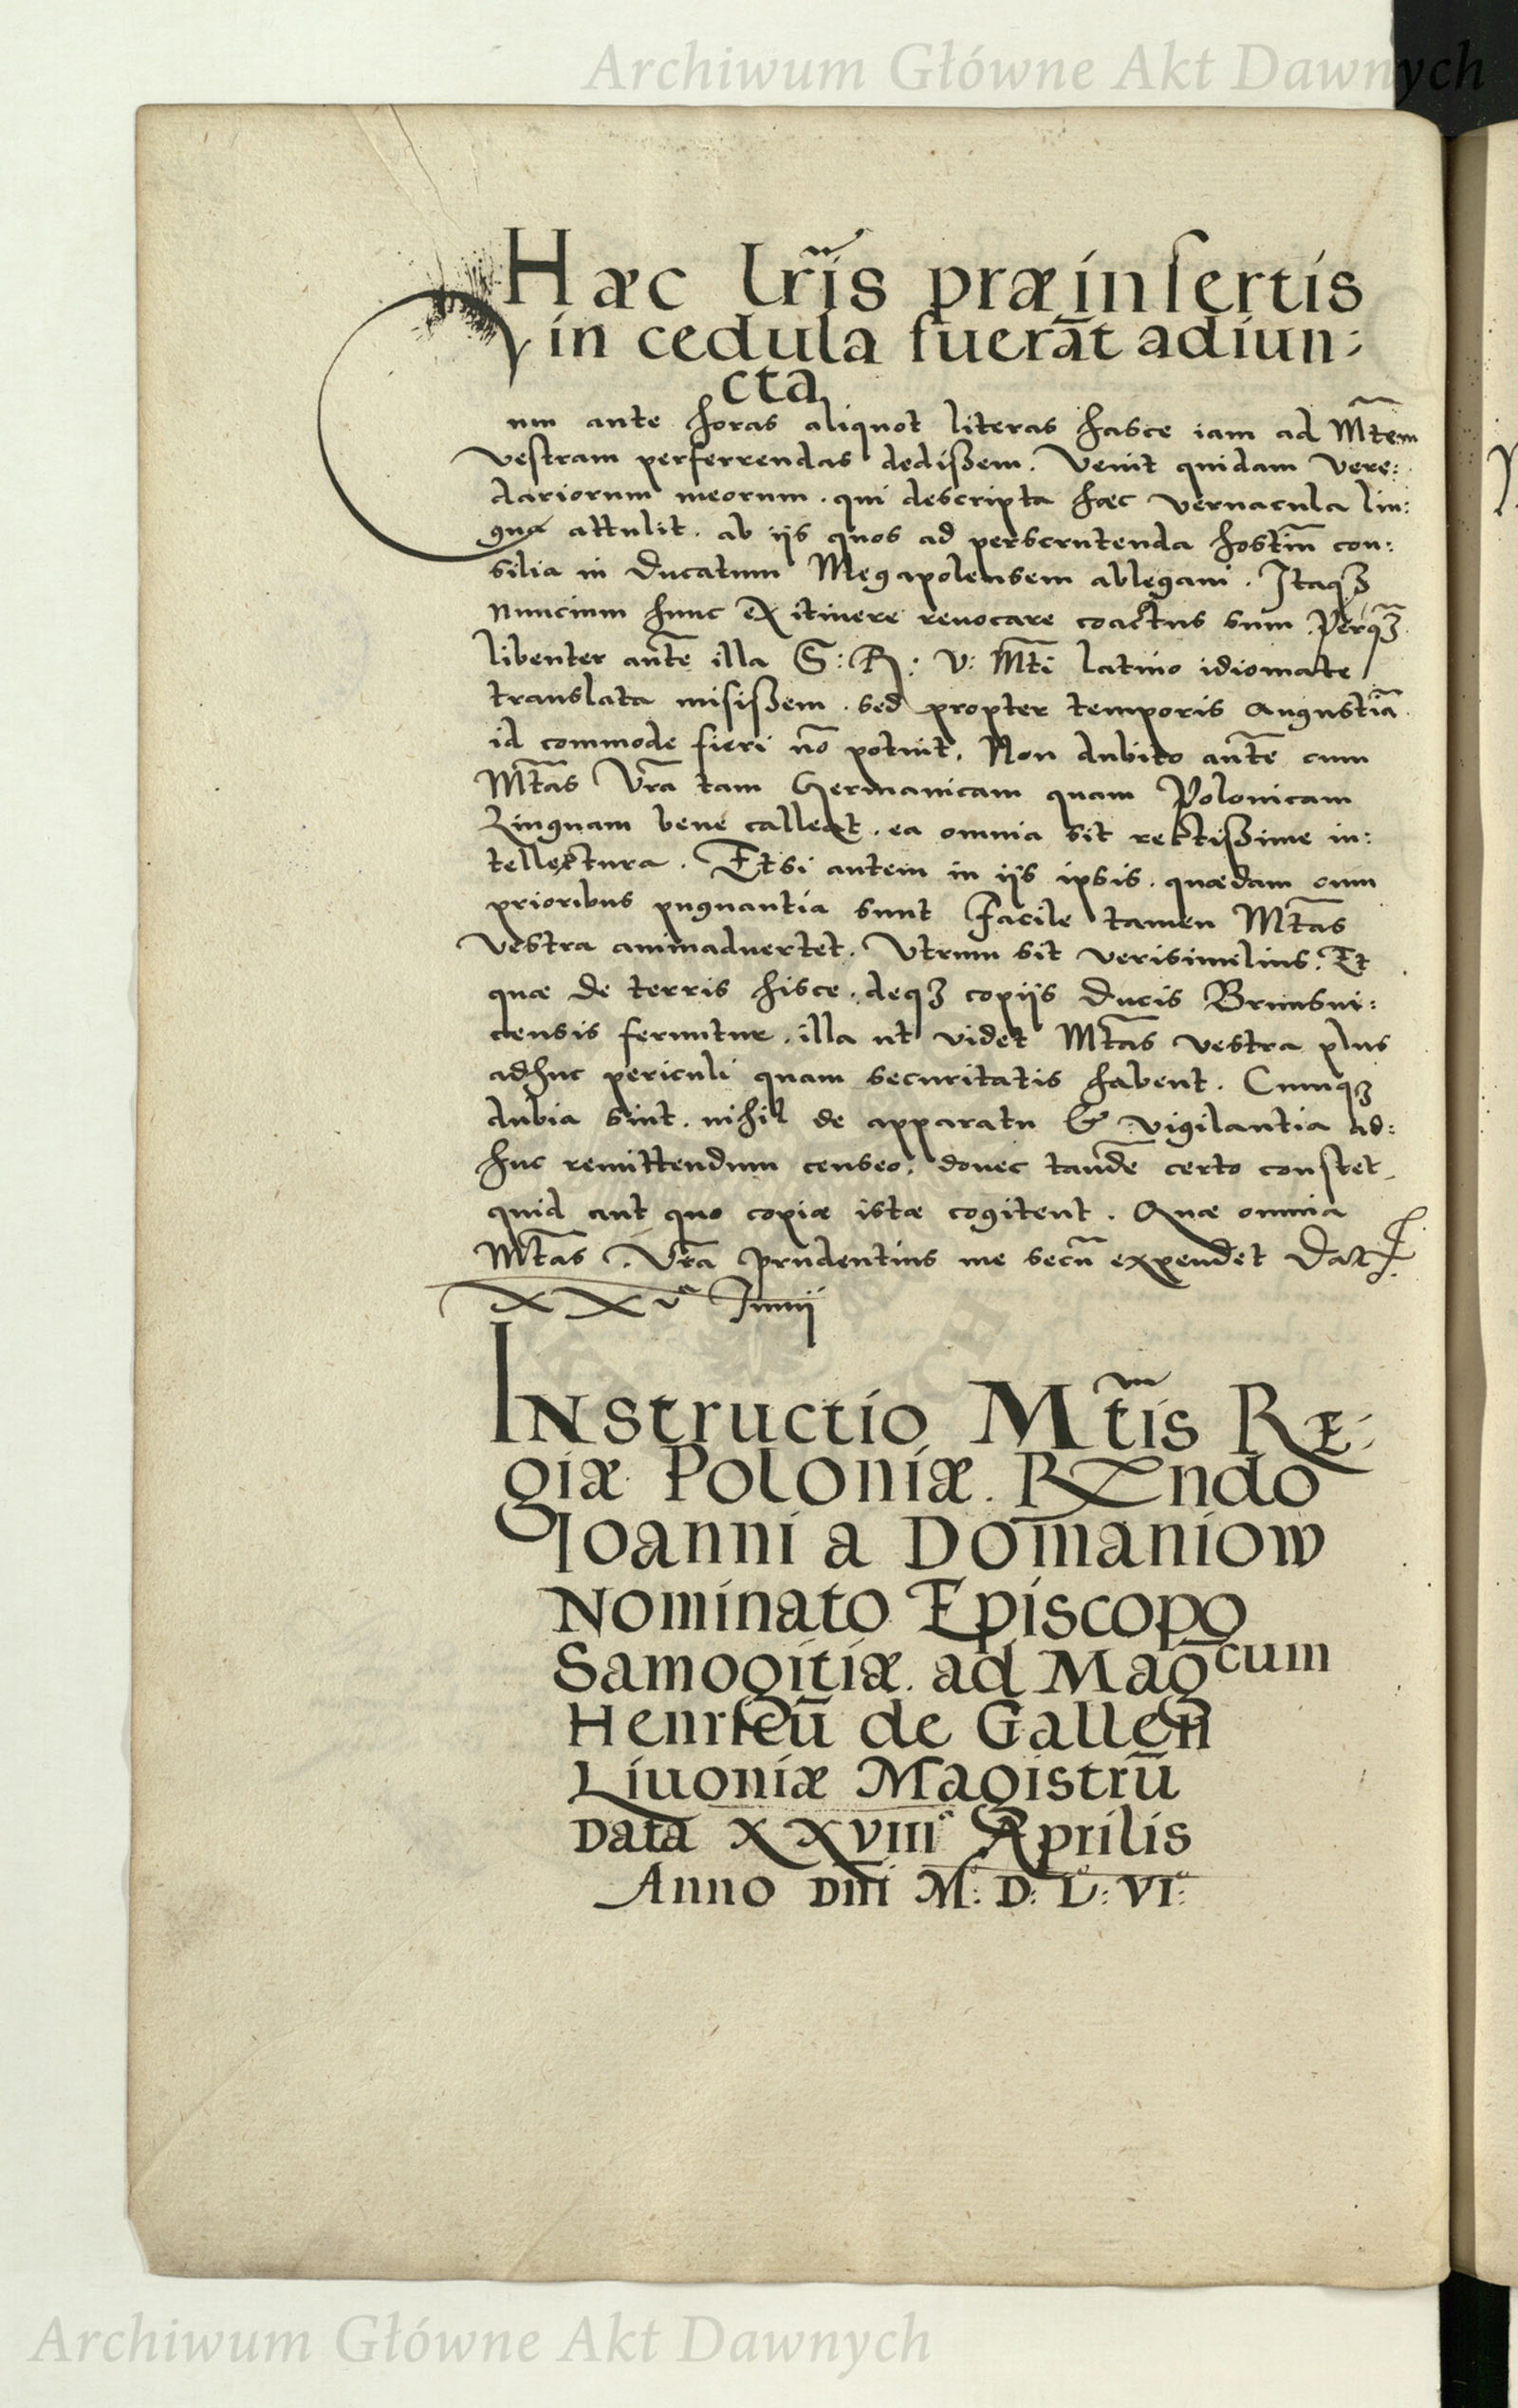 Archiwum Główne Akt Dawnych
Hæc lr̃is præinsertis
in cedula fuerāt adiun:
cta
Cum ante horas aliquot literas hasce iam ad Mt̃em
Vestram perferrendas dedißem. Venit quidam Vere:
dariorum meorum. qui descripta hæc vernacula lin:
gua attulit. ab ijs quos ad perscrutenda hostiũ con:
silia in Ducatum Megapolensem ablegaui. Itaqꝫ
nuncium hunc ex itinere reuocare coactus sum. Perqꝫ̃
libenter aut̃e illa S: R: V: Mt̃i latino idiomate
translata misißem. sed propter temporis Angustiã
id commode fieri nõ potuit. Non dubito aut̃e cum
Mt̃as Vr̃a tam Germanicam quam Polonicam
Linguam bene calleat. ea omnia sit rectißime in:
tellectura. Etsi autem in ijs ipsis. quædam cum
prioribus pugnantia sunt Facile tamen Mt̃as
Vestra animaduertet. Vtrum sit verisimilius. Et
quæ de terris hisce. deqꝫ copijs Ducis Brunsui:
censis feruntur. illa ut videt Mt̃as vestra plus
adhuc periculi quam securitatis habent. Cumqꝫ
dubia sint. nihil de apparatu & vigilantia ad:
huc remittendum censeo. donec tandẽ certo constet
quid aut quo copiæ istæ cogitent. Quæ omnia
Mt̃as. Vr̃a prudentius me secũ expendet Dat
XXVa Junij
Instructio Mt̃is Re:
giæ Poloniæ. Rendo
Ioanni a Domaniow
Nominato Episcopo
Samogitiæ. ad Magcum
Henricū de Gallen
Liuoniæ Magistrū
Data XXVIIIa Aprilis
Anno Dni M: D: L: VI:
Archiwum Główne Akt Dawnych